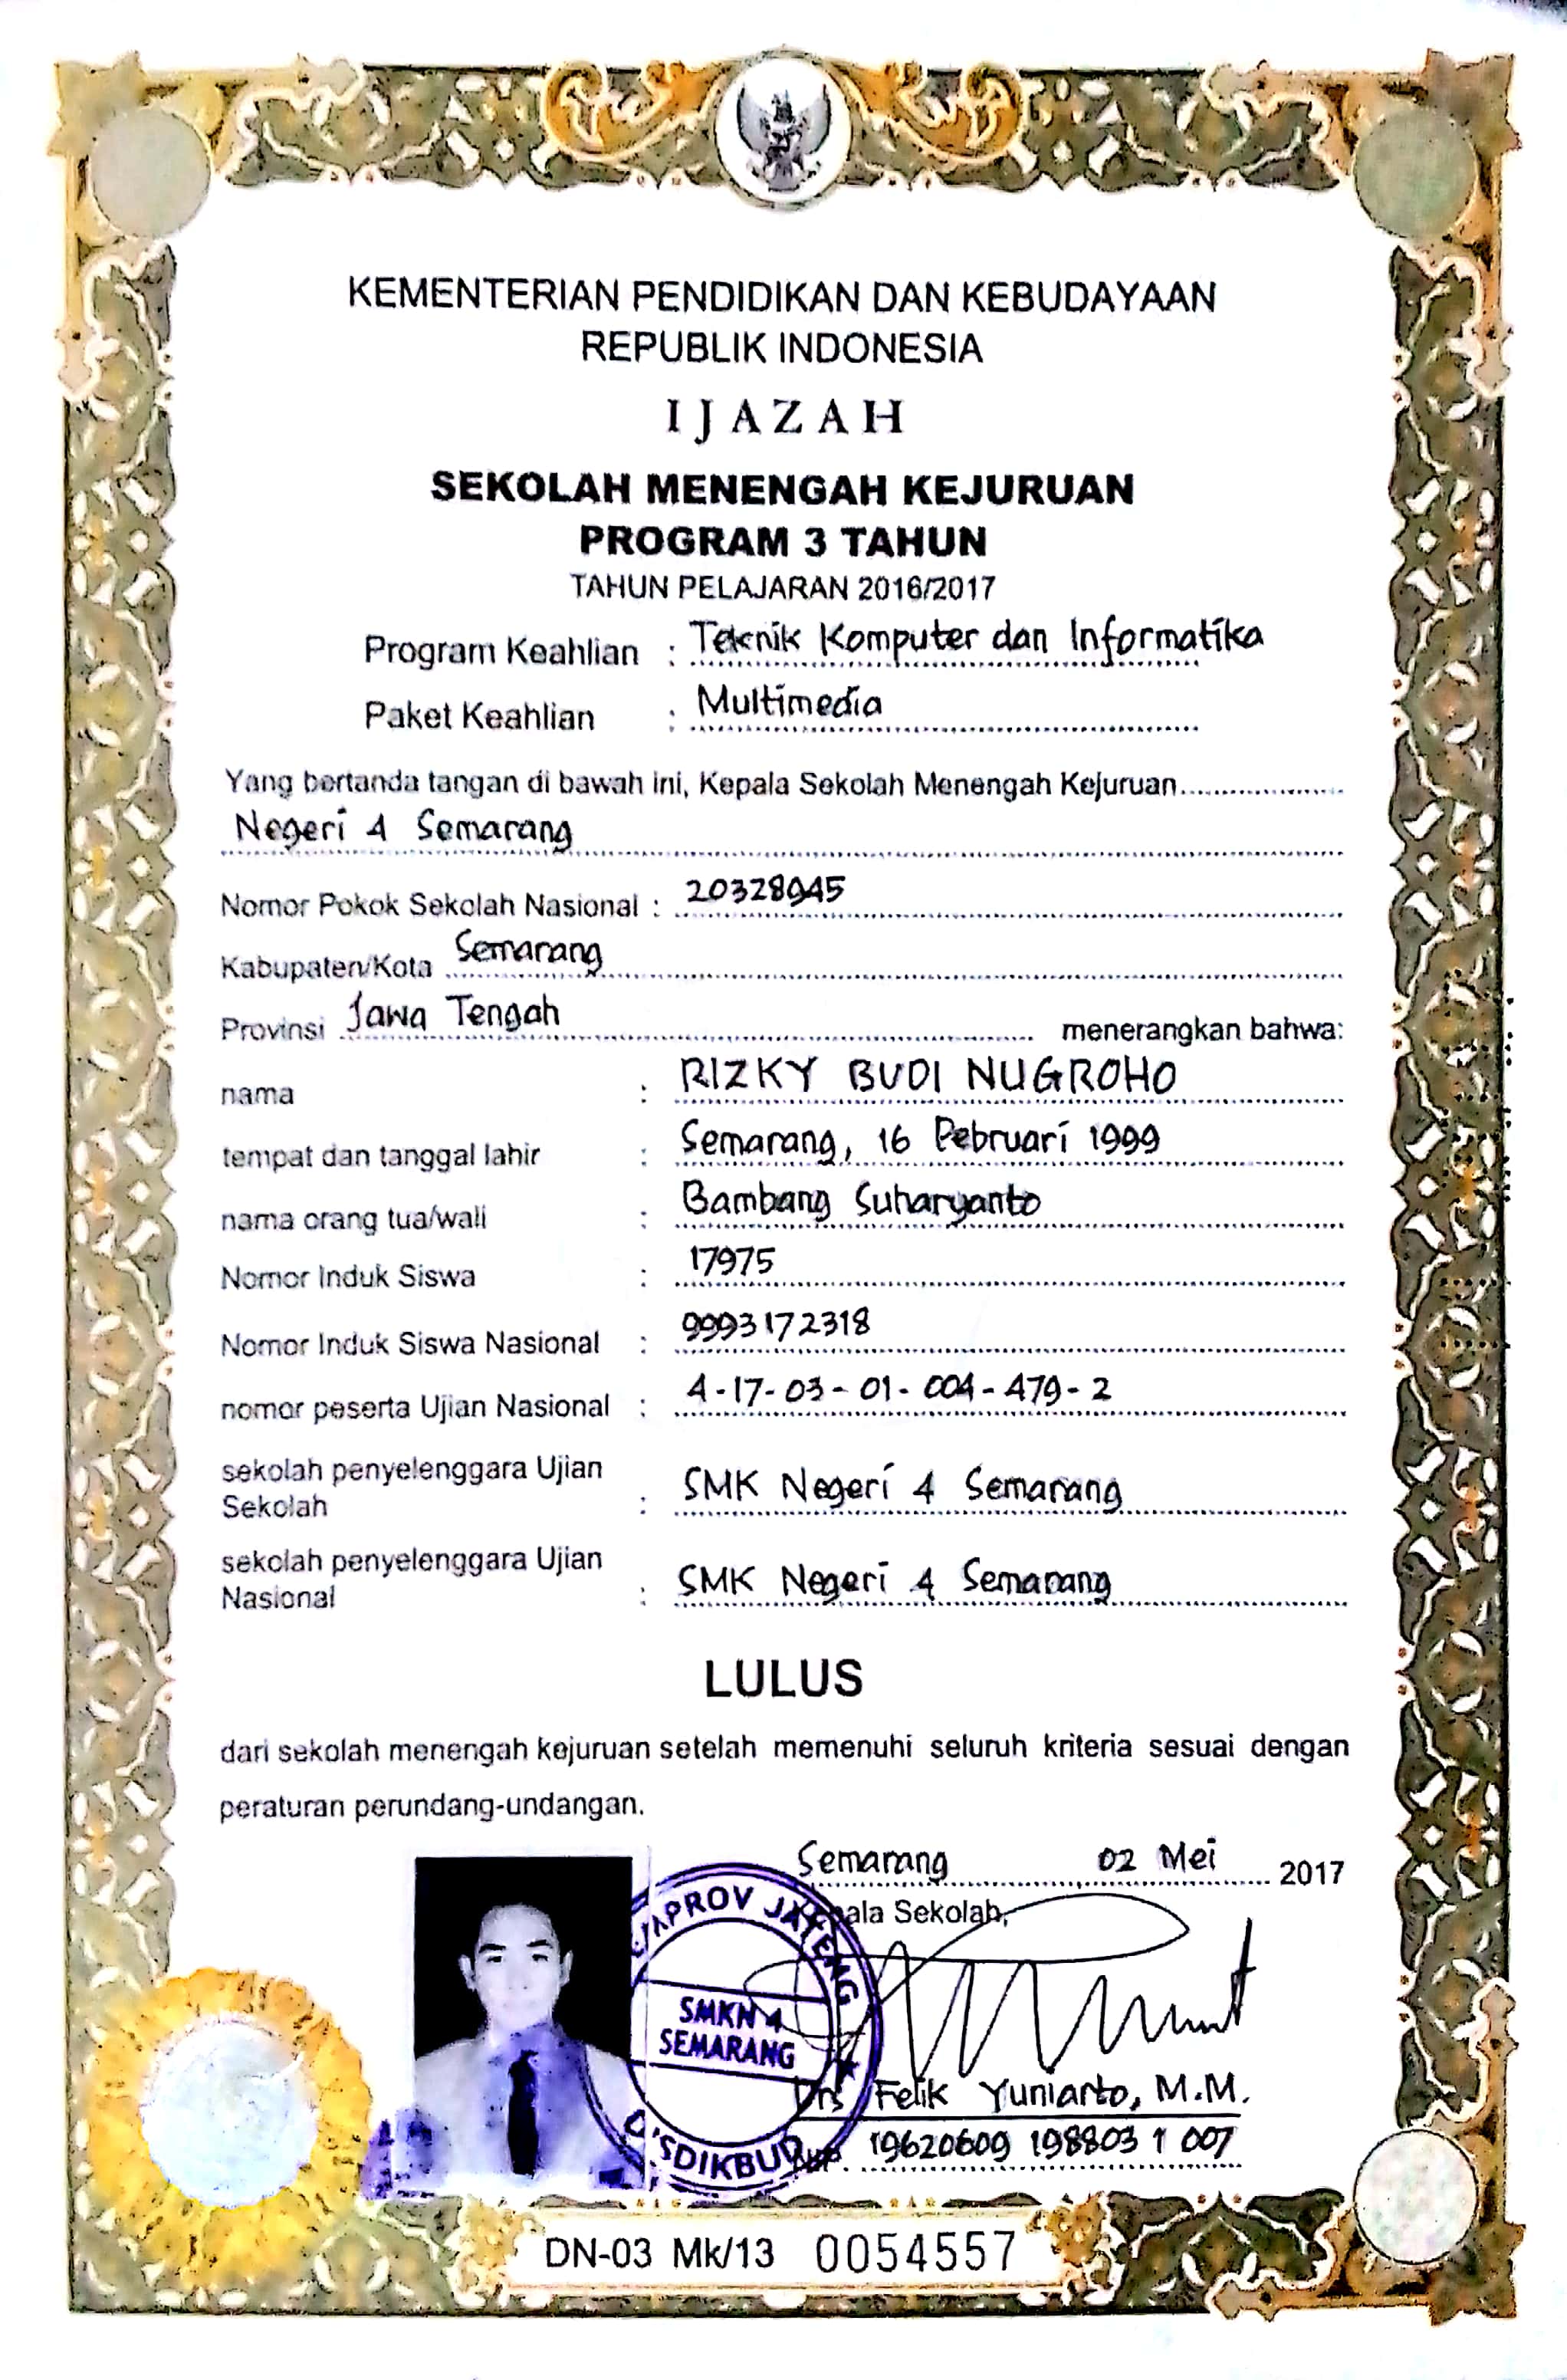 KEMENTERIAN PENDIDIKAN DAN KEBUDAYAAN
REPUBLIK INDONESIA
IJAZAH
SEKOLAH MENENGAH KEJURUAN
PROGRAM 3 TAHUN
TAHUN PELAJARAN 2016/2017
Program Keahlian : Teknik Komputer dan Informatika
Paket Keahlian : Multimedia
Yang bertanda tangan di bawah ini, Kepala Sekolah Menengah Kejuruan
Negeri 4 Semarang
Nomor Pokok Sekolah Nasional : 20328945
Kabupaten/Kota Semarang
Provinsi Jawa Tengah menerangkan bahwa:
nama : RIZKY BUDI NUGROHO
tempat dan tanggal lahir : Semarang, 16 Pebruari 1999
nama orang tua/wali : Bambang Suharyanto
Nomor Induk Siswa : 17975
Nomor Induk Siswa Nasional : 9993172318
nomor peserta Ujian Nasional : 4-17-03-01-004-479-2
sekolah penyelenggara Ujian
Sekolah : SMK Negeri 4 Semarang
sekolah penyelenggara Ujian
Nasional : SMK Negeri 4 Semarang
LULUS
dari sekolah menengah kejuruan setelah memenuhi seluruh kriteria sesuai dengan
peraturan perundang-undangan.
Semarang 02 Mei 2017
ala Sekolah,
PROV JATENG
SMKN 4
SEMARANG
DISDIKBUD
Drs Felik Yuniarto, M.M.
19620609 198803 1 007
DN-03 Mk/13 0054557